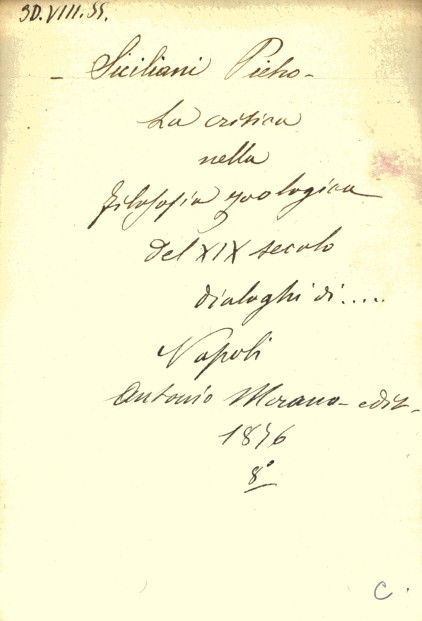 30.VIII.55.
- Siciliani Pietro -
La critica
nella
filosofia zoologica
del XIX secolo
dialoghi di.....
Napoli
Antonio Morano - edit -
1876
8°
C.